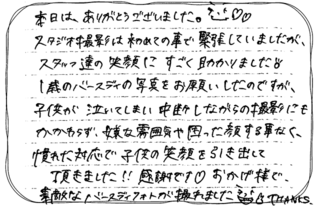 本日は、ありがとうございました。
スタジオ撮影は初めての事で緊張していましたが、
スタッフ達の笑顔に すごく助かりました
1歳のバースディの写真をお願いしたのですが、
子供が 泣いてしまい 中断しながらの撮影にも
かかわらず、嫌な雰囲気や困った顔する事なく、
慣れた対応で子供の笑顔を引き出して
頂きました!! 感謝です♡ おかげ様で、
素敵なバースディフォトが撮れました THANKS.